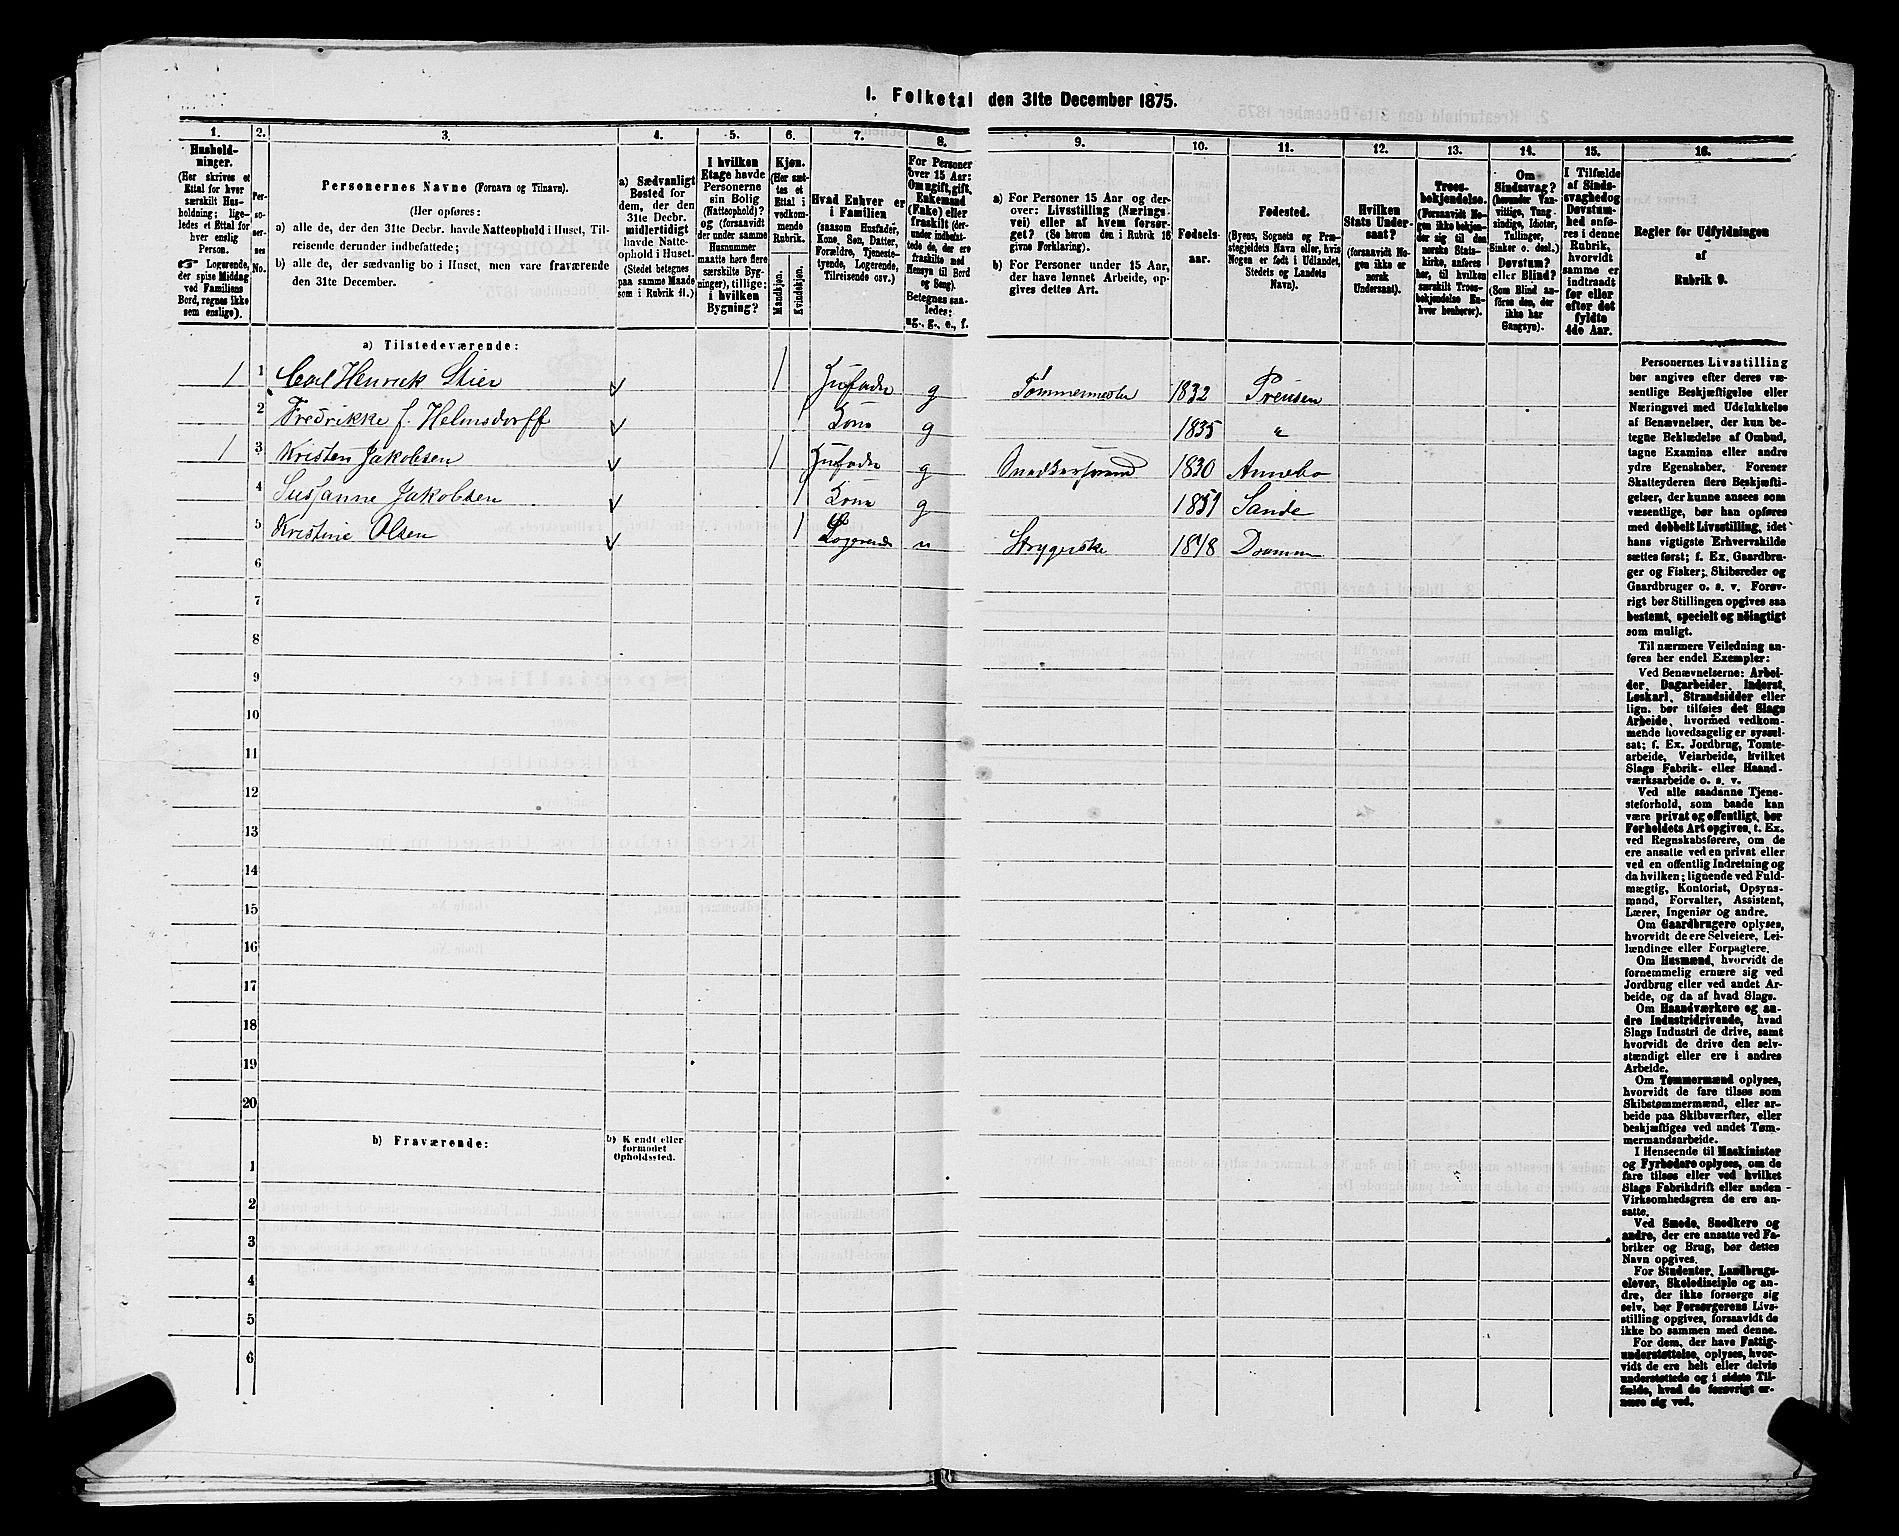 1. Folketal den 31te December 1875.
1.
2.
3.
4.
5.
6.
7.
8.
9.
10.
11.
12.
13.
14.
15.
16.
Hushold-
ninger.
(Her skrives et
Ettal for hver
særskilt Hus-
holdning; lige-
ledes et Ettal for
hver enslig
Person.
☞ Logerende,
der spise Middag
ved Familiens
Bord, regnes ikke
som enslige).
Per-
so-
ner-
nes
No.
Personernes Navne (Fornavn og Tilnavn).
(Her opføres:
a) alle de, der den 31te Decbr. havde Natteophold i Huset, Til-
reisende derunder indbefattede;
b) alle de, der sædvanlig bo i Huset, men vare fraværende
den 31te December.
a) Sædvanligt
Bosted for
dem, der den
31te Decbr.
midlertidigt
havde Natte-
ophold i Huset.
(Stedet betegnes
paa samme Maade
som i Rubrik 11.)
I hvilken
Etage havde
Personerne
sin Bolig
(Natteophold)?
og (forsaavidt
der under samme
Husnummer
maatte høre flere
særskilte Byg-
ninger), tillige:
i hvilken
Bygning?
Kjøn.
(Her sæt-
tes et
Ettal i
vedkom-
mende
Rubrik.
Mandkjøn.
Kvindekjøn.
Hvad Enhver er
i Familien
(saasom Husfader,
Kone, Søn, Datter,
Forældre, Tjeneste-
tyende, Logerende,
Tilreisende osv.)
For Personer
over 15 Aar:
Om ugift, gift,
Enkemand
(Enke) eller
fraskilt (der-
under indbefat-
tede de, der ere
fraskilte med
Hensyn til Bord
og Seng).
Betegnes saa-
ledes:
ug., g., e., f.
a) For Personer 15 Aar og der-
over: Livsstilling (Nærings-
vei) eller af hvem forsør-
get? (Se herom den i Rubrik 16
givne Forklaring).
b) For Personer under 15 Aar,
der have lønnet Arbeide, op-
gives dettes Art.
Fødsels-
aar.
Fødested.
(Byens, Sognets og Præ-
stegjeldets Navn eller, hvis
Nogen er født i Udlandet,
Stedets og Landets
Navn).
Hvilken
Stats Under-
saat?
(forsaavidt No-
gen ikke er
norsk
Undersaat).
Troes-
bekjendelse.
(Forsaavidt No-
gen ikke bekjen-
der sig til den
norske Stats-
kirke, anføres
her, til hvilken
særskilt Troes-
bekjendelse En-
hver henhører).
Om
Sindssvag?
(herunder Van-
vittige, Tung-
sindige, Idioter,
Tullinger,
Sinker o. desl.).
Døvstum?
eller Blind?
(Som Blind an-
føres den, der
ikke har
Gangsyn).
I Tilfælde
af Sinds-
svaghed og
Døvstum-
hed anfø-
res i denne
Rubrik,
hvorvidt
samme er
indtraadt
før eller
efter det
fyldte
4de Aar.
Regler for Udfyldningen
af
Rubrik 9.
a) Tilstedeværende:
1 1 Carl Henrick Stier 1 Husfader g Tømmermester 1832 Preusen
2 Fredrikke f. Helmsdorff 1 Kone g 1835 "
1 3 Kristen Jakobsen 1 Husfader g Snedkersvend 1830 Annebo
4 Susanne Jakobsen 1 Kone g 1851 Sande
5 Kristine Olsen 1 Logerende u Strygerske 1848 Drammen
6
7
8
9
10
11
12
13
14
15
16
17
18
19
20
b) Fraværende:
b) Kjendt eller
formodet
Opholdssted.
1
2
3
4
5
6
Personernes Livsstilling
bør angives efter deres væ-
sentlige Beskjæftigelse eller
Næringsvei med Udelukkelse
af Benævnelser, der kun be-
tegne Beklædelse af Ombud,
tagne Examina eller andre
ydre Egenskaber. Forener
Skatteyderen flere Beskjæfti-
gelser, der kunne ansees som
væsentlige, bør han opføres
med dobbelt Livsstilling, idet
hans vigtigste Erhvervskilde
sættes først; f. Ex. Gaardbru-
ger og Fisker; Skibsreder og
Gaardbruger o. s. v. Forøv-
rigt bør Stillingen opgives saa
bestemt, specielt og nöiagtigt
som muligt.
Til nærmere Veiledning an-
føres her endel Exempler:
Ved Benævnelserne: Arbei-
der, Dagarbeider, Inderst,
Løskarl, Strandsidder eller
lign. bør tilføies det Slags
Arbeide, hvormed vedkom-
mende hovedsagelig er syssel-
sat; f. Ex. Jordbrug, Tomte-
arbeide, Veiarbeide, hvilket
Slags Fabrik- eller Haand-
værksarbeide o. s. v.
Ved alle saadanne Tjene-
steforhold, som baade kan
være privat og offentligt, bør
Forholdets Art opgives, t. Ex.
ved Regnskabsførere, om de
ere ansatte ved en privat eller
ved en offentlig Indretning og
da hvilken; lignende ved Fuld-
mægtig, Kontorist, Opsyns-
mand, Forvalter, Assistent,
Lærer, Ingeniør og andre.
Om Gaardbrugere oplyses,
hvorvidt de ere Selveiere, Lei-
lændinge eller Forpagtere.
Om Husmænd, hvorvidt de
fornemmelig ernære sig ved
Jordbrug eller ved andet Ar-
beide, og da af hvad Slags.
Om Haandværkere og an-
dre Industridrivende, hvad
Slags Industri de drive, samt
hvorvidt de drive den selv-
stændigt eller ere i andres
Arbeide.
Om Tømmermænd oplyses,
hvorvidt de fare tilsøs som
Skibstømmermænd, eller ar-
beide paa Skibsværfter, eller
beskjæftiges ved andet Tøm-
mermandsarbeide.
I Henseende til Maskinister
og Fyrbødere oplyses, om de
fare tilsøs eller ved hvilket
Slags Fabrikdrift eller anden
Virksomhedsgren de ere an-
satte.
Ved Smede, Snedkere og
andre, der ere ansatte ved Fa-
briker og Brug, bør dettes
Navn opgives.
For Studenter, Landbrugs-
elever, Skoledisciple og an-
dre, der ikke forsørge sig
selv, bør Forsørgerens Livs-
stilling opgives, forsaavidt de
ikke bo sammen med denne.
For dem, der have Fattig-
understøttelse, oplyses, hvor-
vidt de ere helt eller delvis
understøttede og i sidste Til-
fælde, hvad de forøvrigt er-
nære sig ved.